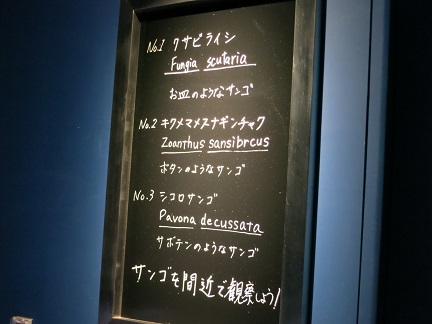 No.1 クサビライシ
Fungia scutaria
お皿のようなサンゴ
No.2 キクメマメスナギンチャク
Zoanthus sansibrcus
ボタンのようなサンゴ
No.3 シコロサンゴ
Pavona decussata
サボテンのようなサンゴ
サンゴを間近で観察しよう!